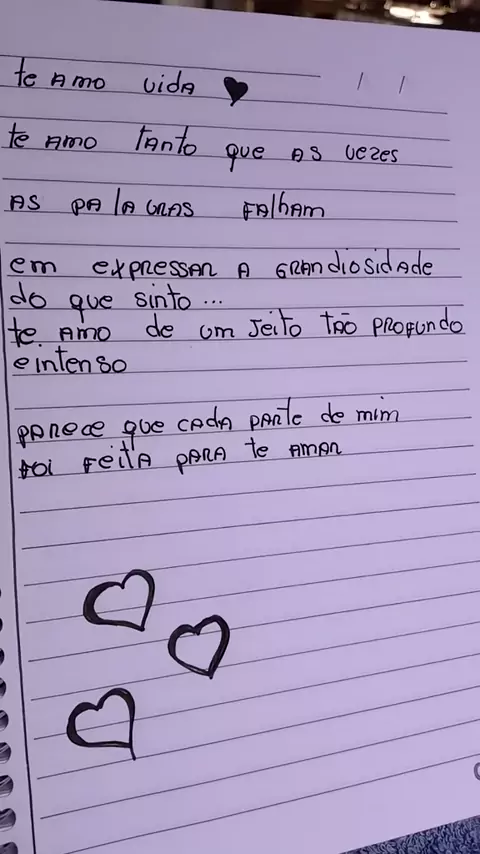 te amo vida ♥
te amo tanto que as vezes
as palavras falham
em expressar a grandiosidade
do que sinto...
te. amo de um jeito tão profundo
e intenso
parece que cada parte de mim
foi feita para te amar